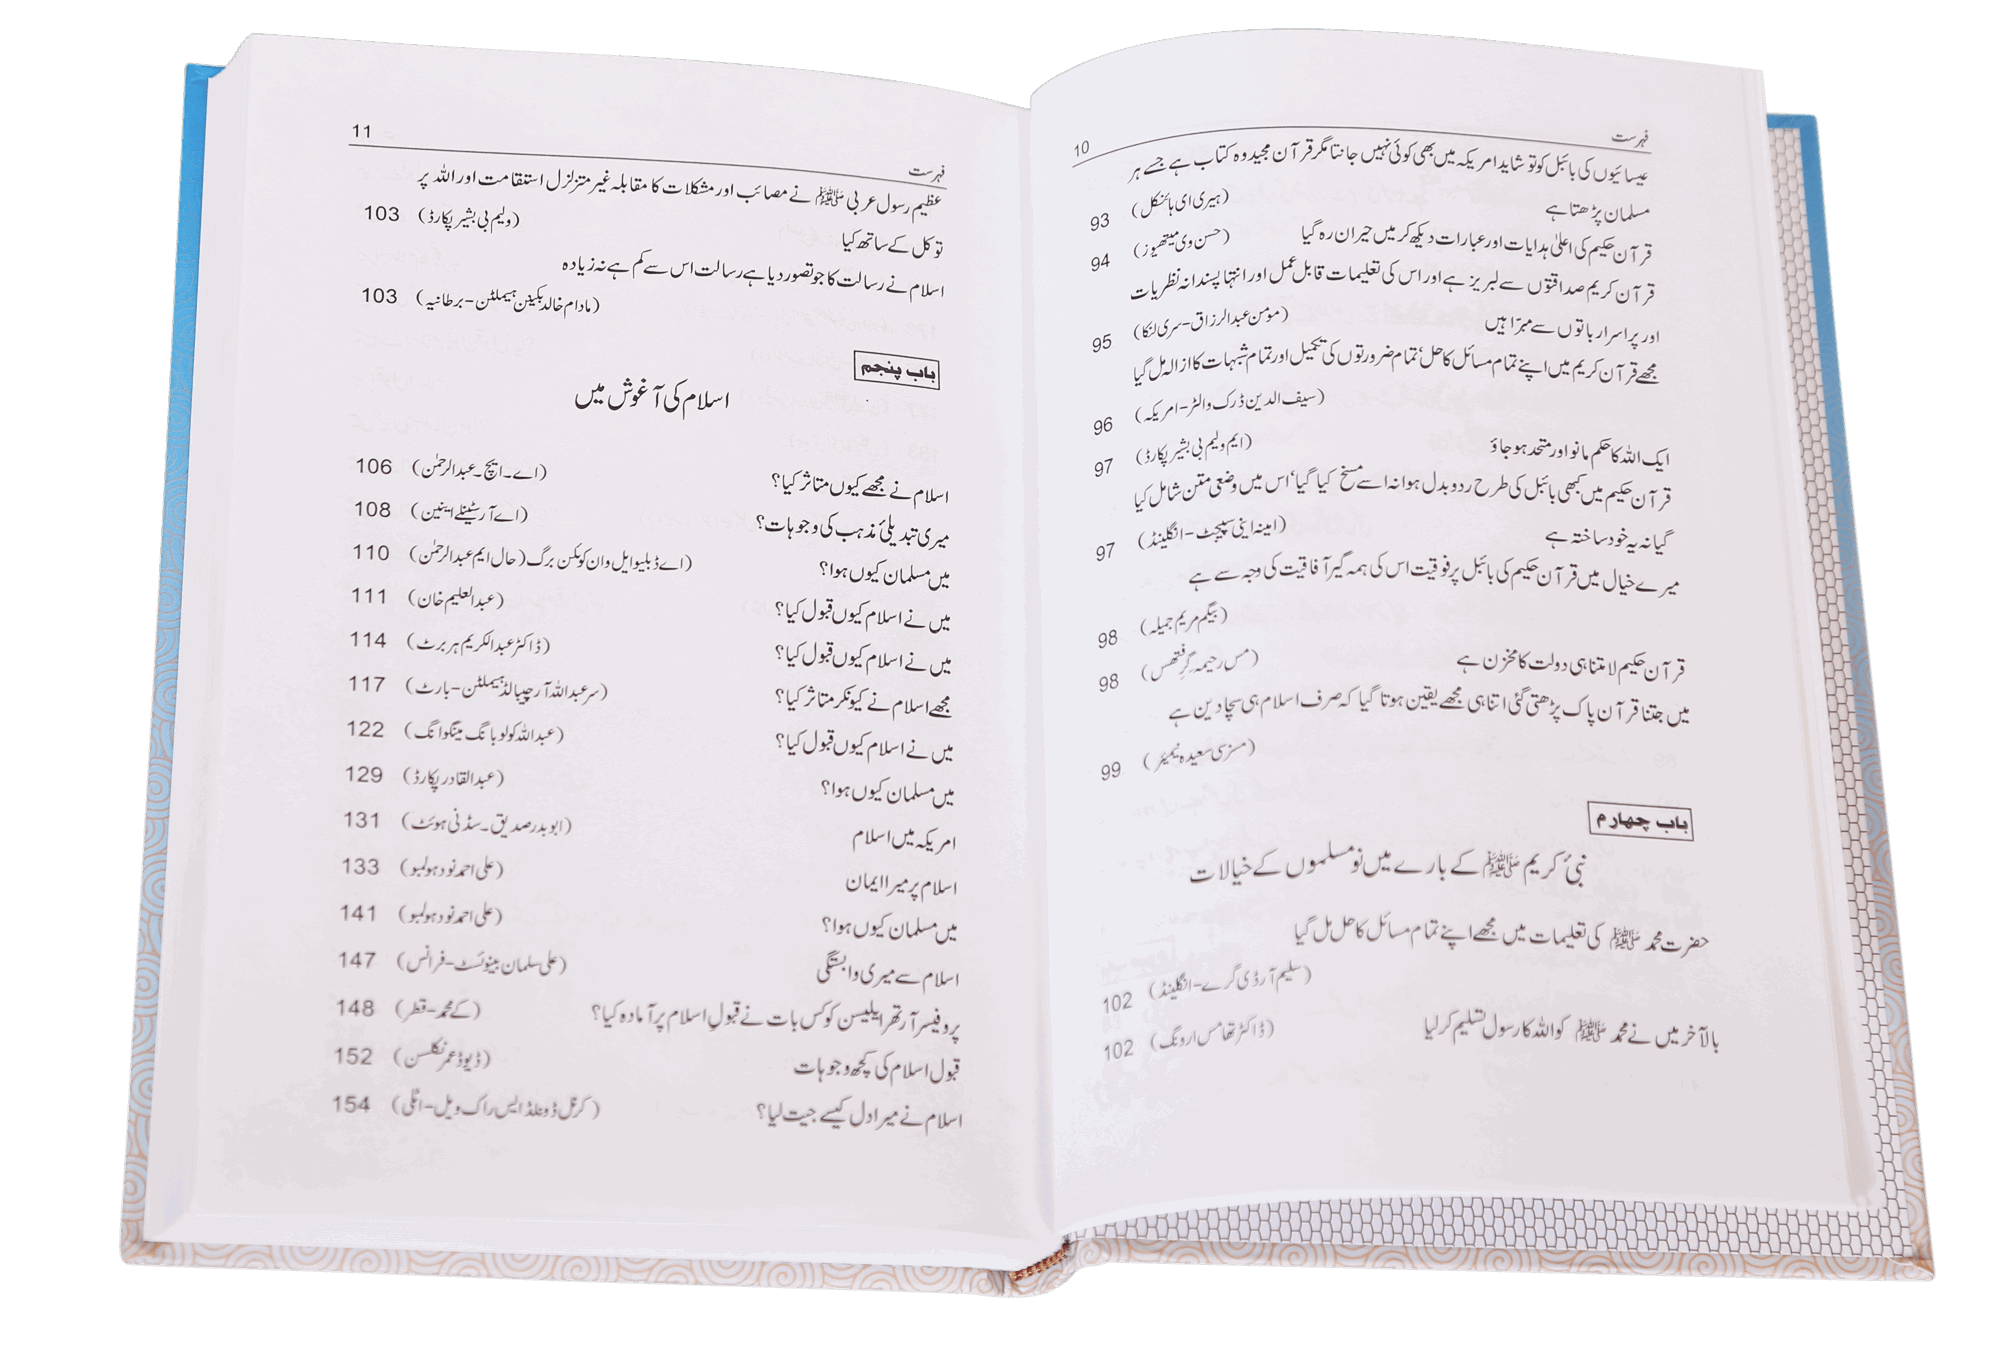 فہرست 10
عیسائیوں کی بائبل کو تو شاید امریکہ میں بھی کوئی نہیں جانتا مگر قرآن مجید وہ کتاب ہے جسے ہر
مسلمان پڑھتا ہے (ہیری ای ہائنکل) 93
قرآن حکیم کی اعلیٰ ہدایات اور عبارات دیکھ کر میں حیران رہ گیا (حسن وی میتھیوز) 94
قرآن کریم صداقتوں سے لبریز ہے اور اس کی تعلیمات قابل عمل اور انتہا پسندانہ نظریات
اور پراسرار باتوں سے مبرّا ہیں (مومن عبدالرزاق-سری لنکا) 95
مجھے قرآن کریم میں اپنے تمام مسائل کا حل‘ تمام ضرورتوں کی تکمیل اور تمام شبہات کا ازالہ مل گیا
(سیف الدین ڈرک والٹر-امریکہ) 96
ایک اللہ کا حکم مانو اور متحد ہو جاؤ (ایم ولیم بی بشیر پکارڈ) 97
قرآن حکیم میں کبھی بائبل کی طرح ردوبدل ہوا نہ اسے مسخ کیا گیا‘ اس میں وضعی متن شامل کیا
گیا نہ یہ خود ساختہ ہے (امینہ اینی سپیجٹ-انگلینڈ) 97
میرے خیال میں قرآن حکیم کی بائبل پر فوقیت اس کی ہمہ گیر آفاقیت کی وجہ سے ہے
(بیگم مریم جمیلہ) 98
قرآن حکیم لامتناہی دولت کا مخزن ہے (مس رحیمہ گرِفتھس) 98
میں جتنا قرآن پاک پڑھتی گئی اتنا ہی مجھے یقین ہوتا گیا کہ صرف اسلام ہی سچا دین ہے
(مسز سی سعیدہ نیمیئر) 99
باب چہارم
نبیٔ کریم ﷺ کے بارے میں نومسلموں کے خیالات
حضرت محمد ﷺ کی تعلیمات میں مجھے اپنے تمام مسائل کا حل مل گیا
(سلیم آر ڈی گرے-انگلینڈ) 102
بالآخر میں نے محمد ﷺ کو اللہ کا رسول تسلیم کرلیا (ڈاکٹر تھامس ارونگ) 102
فہرست 11
عظیم رسول عربی ﷺ نے مصائب اور مشکلات کا مقابلہ غیر متزلزل استقامت اور اللہ پر
توکل کے ساتھ کیا (ولیم بی بشیر پکارڈ) 103
اسلام نے رسالت کا جو تصور دیا ہے رسالت اس سے کم ہے نہ زیادہ
(مادام خالدہ بکینن ہیملٹن-برطانیہ) 103
باب پنجم
اسلام کی آغوش میں
اسلام نے مجھے کیوں متاثر کیا؟ (اے۔ ایچ۔ عبدالرحمٰن) 106
میری تبدیلیٔ مذہب کی وجوہات؟ (اے آر سٹینلے اینین) 108
میں مسلمان کیوں ہوا؟ (اے ڈبلیو ایل وان کوئکن برگ (حال ایم عبدالرحمٰن) 110
میں نے اسلام کیوں قبول کیا؟ (عبدالعلیم خان) 111
میں نے اسلام کیوں قبول کیا؟ (ڈاکٹر عبدالکریم ہربرٹ) 114
مجھے اسلام نے کیونکر متاثر کیا؟ (سر عبداللہ آرچیبالڈ ہیملٹن-بارٹ) 117
میں نے اسلام کیوں قبول کیا؟ (عبداللہ کولو بانگ مینگوانگ) 122
میں مسلمان کیوں ہوا؟ (عبدالقادر پکارڈ) 129
امریکہ میں اسلام (ابوبدر صدیق۔ سڈنی ہوئٹ) 131
اسلام پر میرا ایمان (علی احمد نود ہولمبو) 133
میں مسلمان کیوں ہوا؟ (علی احمد نود ہولمبو) 141
اسلام سے میری وابستگی (علی سلمان بینوئسٹ-فرانس) 147
پروفیسر آرتھر ایلیسن کو کس بات نے قبولِ اسلام پر آمادہ کیا؟ (کے محمد-قطر) 148
قبول اسلام کی کچھ وجوہات (ڈیوڈ عمر نکلسن) 152
اسلام نے میرا دل کیسے جیت لیا؟ (کرنل ڈونلڈ ایس راک ویل-اٹلی) 154